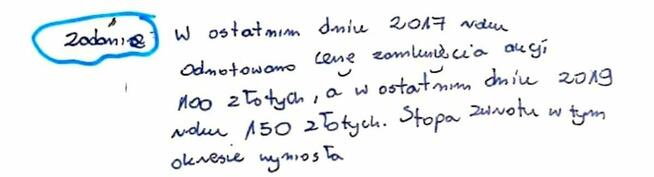 Zadanie W ostatnim dniu 2017 roku
odnotowano cenę zamknięcia akcji
100 złotych, a w ostatnim dniu 2019
roku 150 złotych. Stopa zwrotu w tym
okresie wyniosła